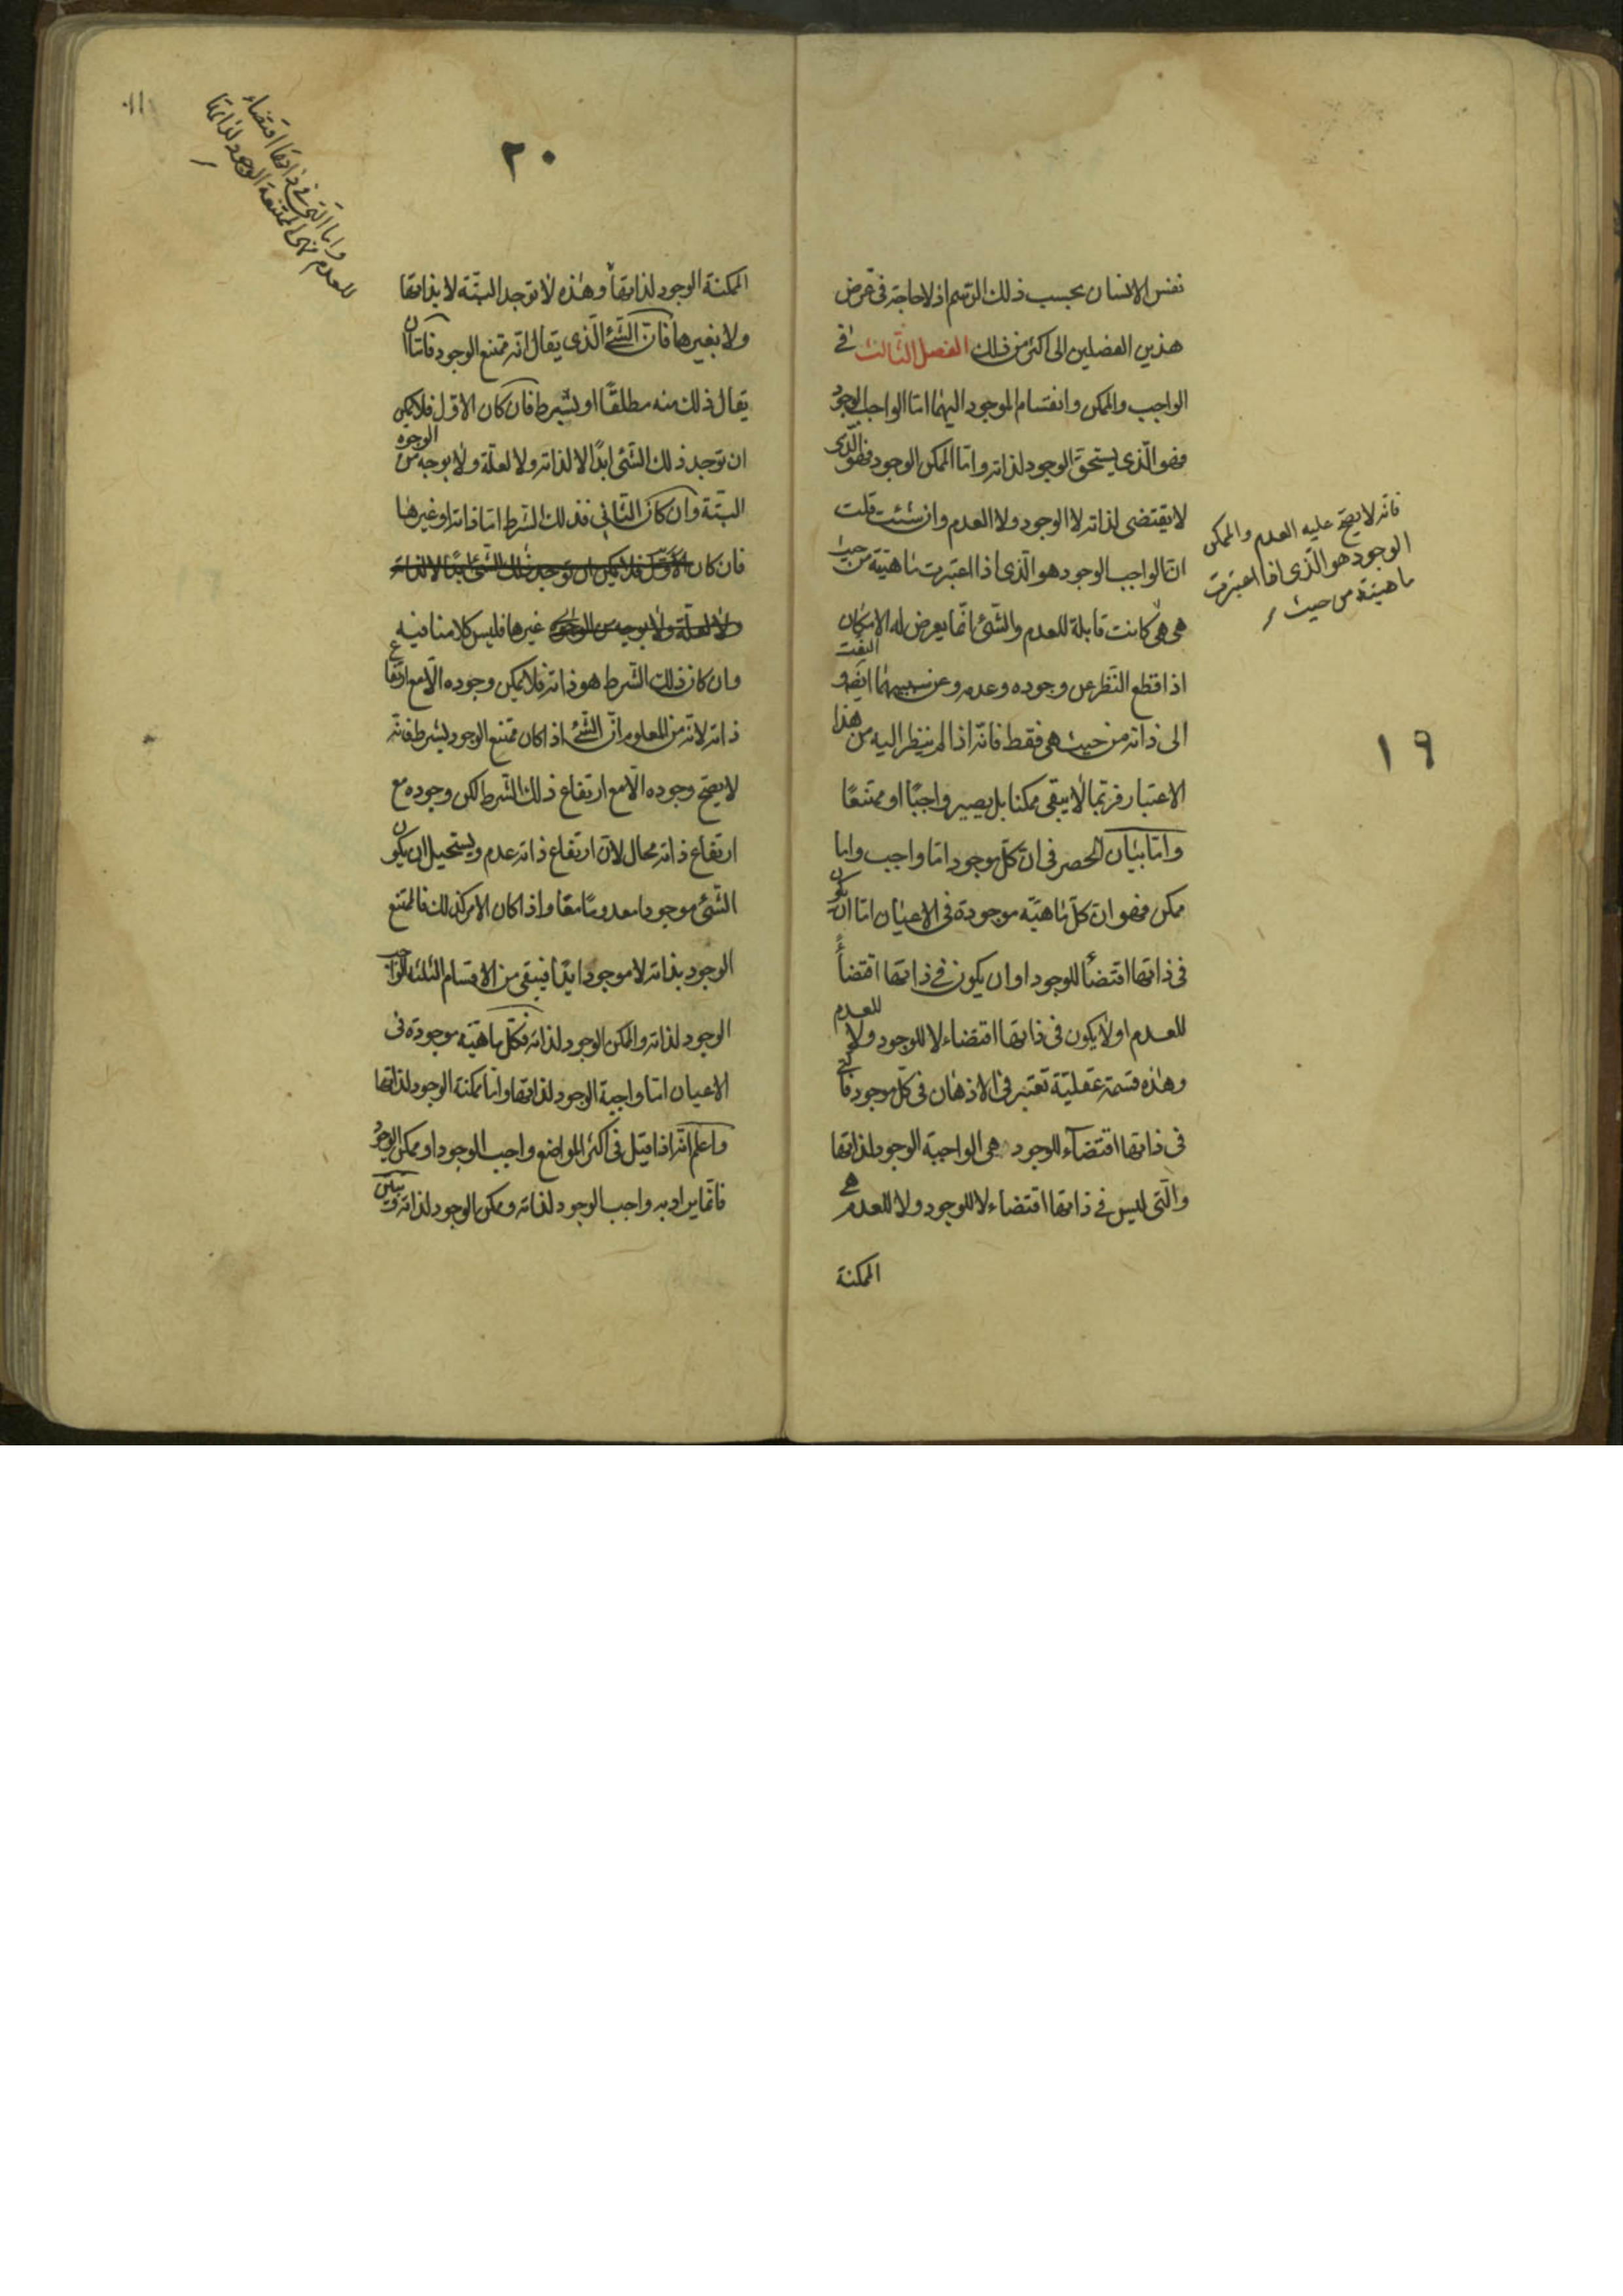 نفس الانسان بحسب ذلك الرسم اذ لا حاجة فى غرض
هذين الفصلين الى اكثر من ذلك الفصل الثالث فى
الواجب والممكن وانقسام الموجود اليهما اما الواجب الوجود
فهو الّذى يستحق الوجود لذاته واما الممكن الوجود فهو الّذى
لا يقتضى لذاته لا الوجود ولا العدم وان شئت قلت
ان الواجب الوجود هو الّذى اذا اعتبرت ماهيته من حيث
هى هى كانت قابلة للعدم والشئ انّما يعرض له الامكان
اذا قطع النظر عن وجوده وعدمه وعن سببيهما ايضا والتفت
الى ذاته من حيث هى فقط فانّه اذا لم ينظر اليه من هذا
الاعتبار فربّما لا يبقى ممكنا بل يصير واجبًا او ممتنعًا
وامّا بيان الحصر فى انّ كلّ موجود امّا واجب واما
ممكن فهو انّ كلّ ماهيّة موجودة فى الاعيان امّا ان يكون
فى ذاتها اقتضاءً للوجود او ان يكون فى ذاتها اقتضاءً
للعدم او لا يكون فى ذاتها اقتضاء لا للوجود ولا للعدم
وهذه قسمة عقليّة تعتبر فى الاذهان فى كلّ موجود فالتى
فى ذاتها اقتضاء للوجود هى الواجبة الوجود لذاتها
والّتى ليس فى ذاتها اقتضاء لا للوجود ولا للعدم هى
الممكنة
فانّه لا يصحّ عليه العدم والممكن
الوجود هو الّذى اذا اعتبرت
ماهيته من حيث
١٩
٢٠
الممكنة الوجود لذاتها وهذه لا توجد البتّة لا بذاتها
ولا بغيرها فانّ الشئ الّذى يقال انّه ممتنع الوجود فامّا ان
يقال ذلك منه مطلقًا او بشرط فان كان الاوّل فلا يمكن
ان توجد ذلك الشئ ابدًا لا لذاته ولا لعلّة ولا بوجه من الوجوه
البتّة وان كان الثانى فذلك الشرط امّا ذاته او غيرها
فان كان الاوّل فلا يمكن ان توجد ذلك الشئ ابدًا لا لذاته
ولا لعلّة ولا بوجه من الوجوه غيرها فليس كلامنا فيه
وان كان ذلك الشرط هو ذاته فلا يمكن وجوده الّا مع ارتفاع
ذاته لانّه من المعلوم انّ الشئ اذا كان ممتنع الوجود بشرط فانّه
لا يصحّ وجوده الّا مع ارتفاع ذلك الشرط لكن وجوده مع
ارتفاع ذاته محال لانّ ارتفاع ذاته عدم ويستحيل ان يكون
الشئ موجودا معدومًا معًا واذا كان الامر كذلك فالممتنع
الوجود بذاته لا موجود ابدًا فيبقى من الاقسام الثلثه الواجب
الوجود لذاته والممكن الوجود لذاته فكلّ ماهيّة موجودة فى
الاعيان امّا واجبة الوجود لذاتها وامّا ممكنة الوجود لذاتها
واعلم انّه اذا قيل فى اكثر المواضع واجب الوجود او ممكن الوجود
فانّما يراد به واجب الوجود لذاته وممكن الوجود لذاته
وامّا الّتى فى ذاتها اقتضاء
للعدم فهى الممتنعة الوجود لذاتها